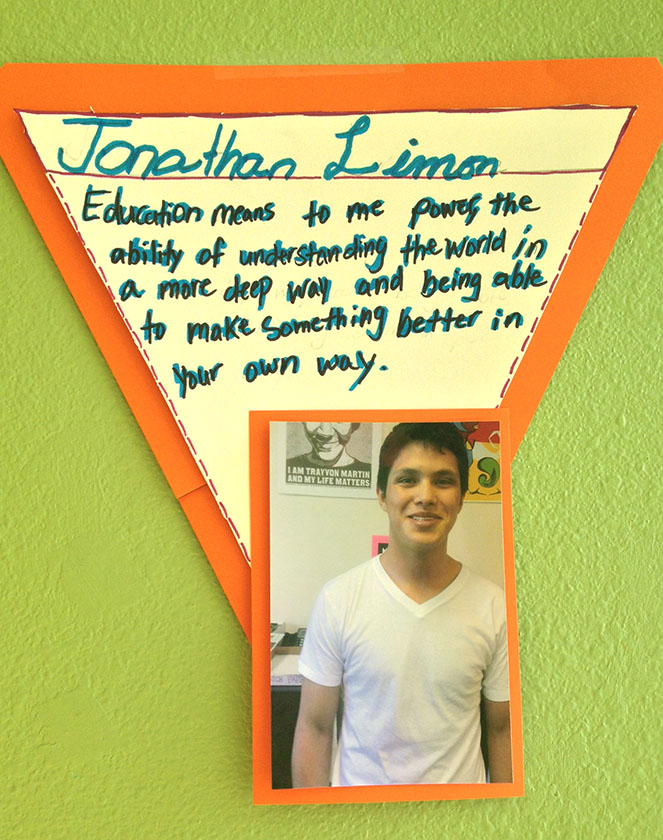 Jonathan Limon
Education means to me power, the
ability of understanding the world in
a more deep way and being able
to make something better in
your own way.
I AM TRAYVON MARTIN
AND MY LIFE MATTERS